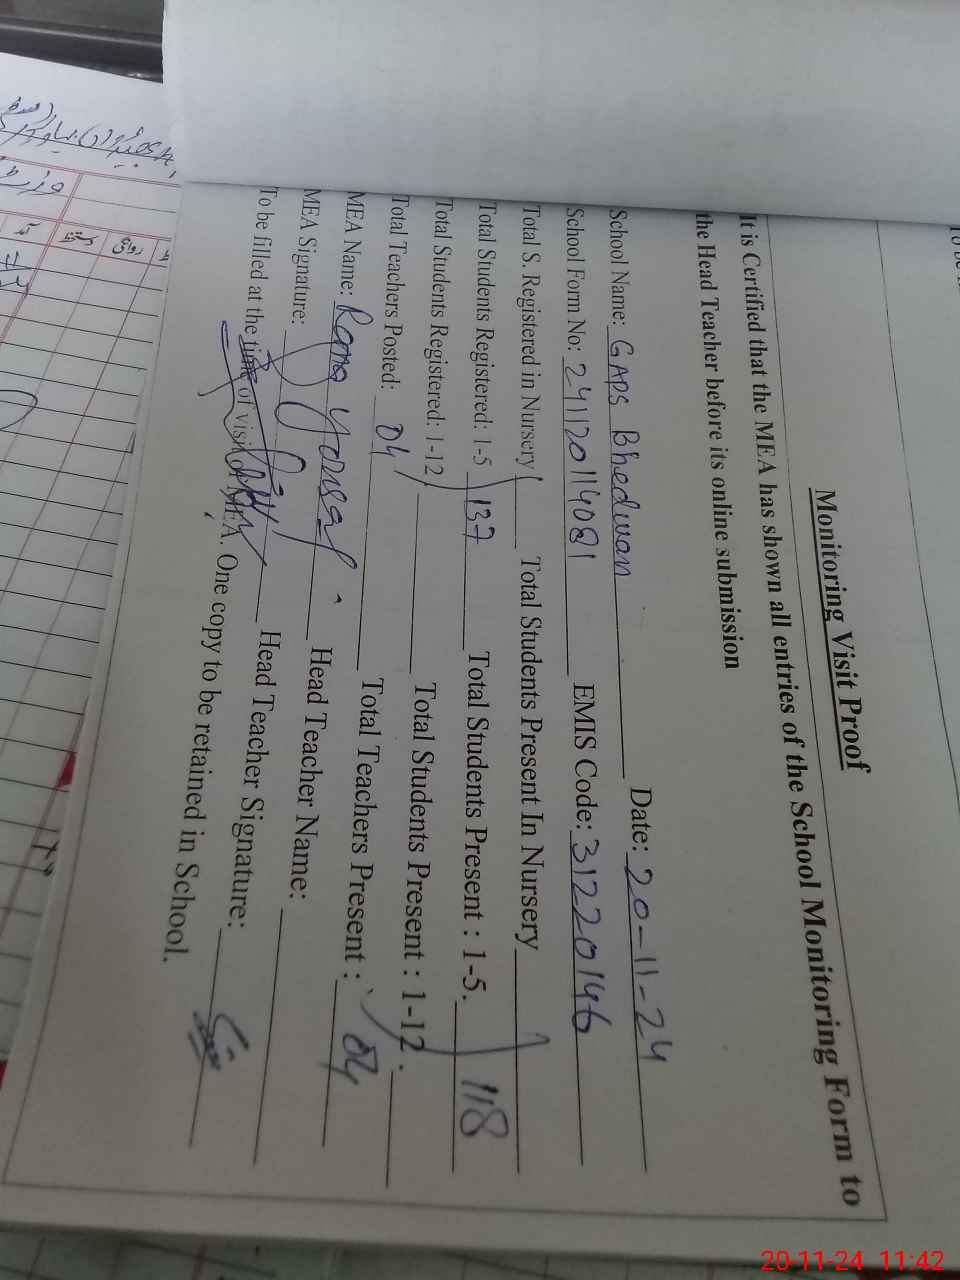 Monitoring Visit Proof
It is Certified that the MEA has shown all entries of the School Monitoring Form to
the Head Teacher before its online submission
School Name: GAPS Bhediwan Date: 20-11-24
School Form No: 241120114081 EMIS Code: 31220146
Total S. Registered in Nursery Total Students Present In Nursery
Total Students Registered: 1-5 137 Total Students Present : 1-5. 118
Total Students Registered: 1-12 Total Students Present : 1-12.
Total Teachers Posted: 04 Total Teachers Present : 04
MEA Name: Rana Yousaf Head Teacher Name:
MEA Signature: Head Teacher Signature:
To be filled at the time of visit of MEA. One copy to be retained in School.
20-11-24 11:42